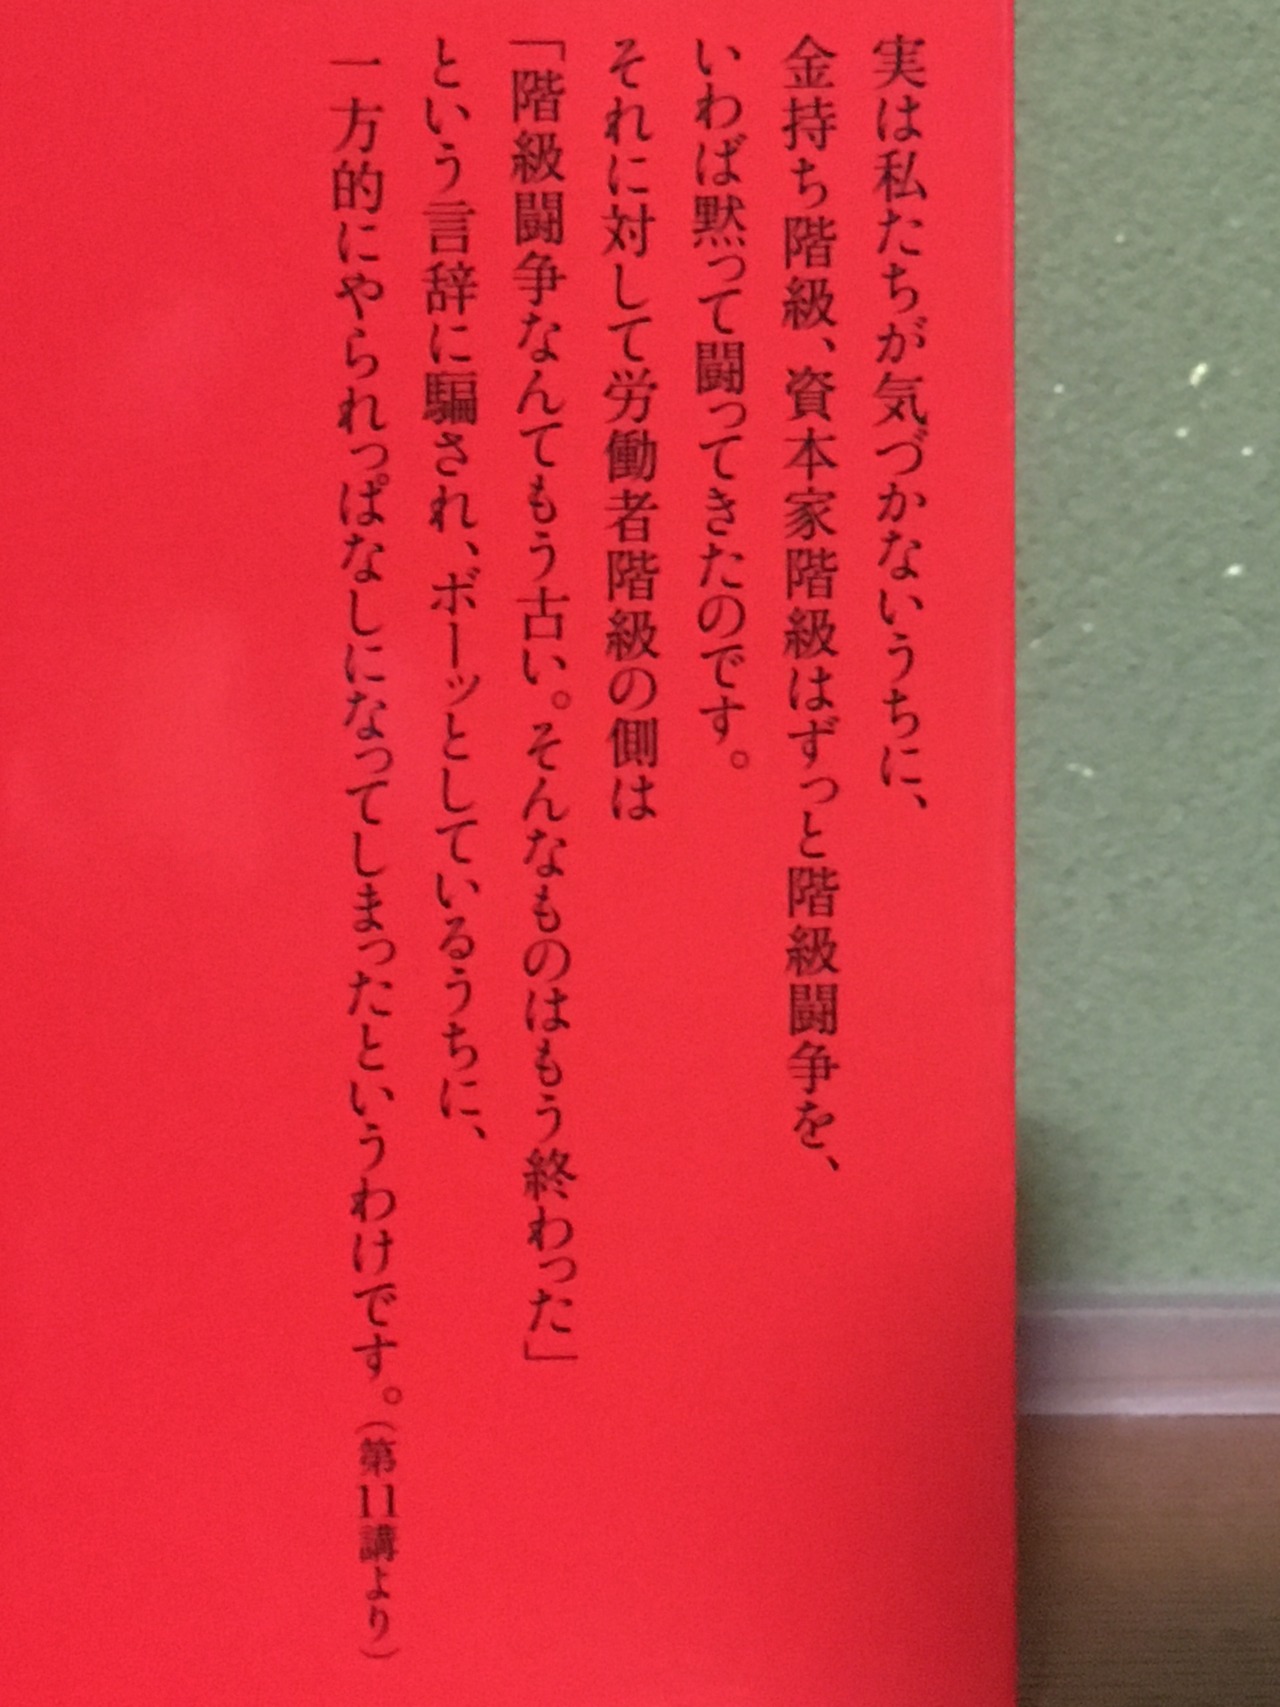 実は私たちが気づかないうちに、
金持ち階級、資本家階級はずっと階級闘争を、
いわば黙って闘ってきたのです。
それに対して労働者階級の側は
「階級闘争なんてもう古い。そんなものはもう終わった」
という言辞に騙され、ボーッとしているうちに、
一方的にやられっぱなしになってしまったというわけです。(第11講より)